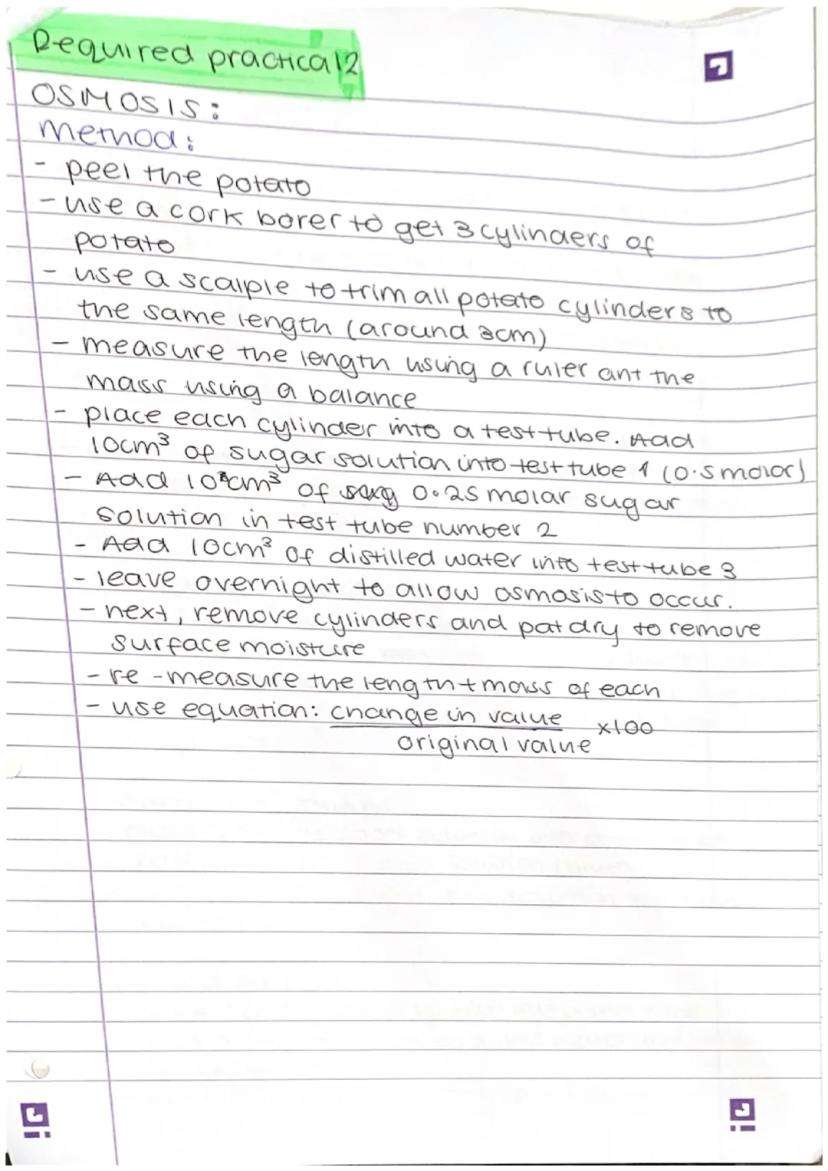 Required practical 2
OSMOSIS:
Method:
- peel the potato
- use a cork borer to get 3 cylinders of
potato
- use a scalple to trim all potato cylinders to
the same length (around 3cm)
- measure the length using a ruler ant the
mass using a balance
- place each cylinder into a test tube. Add
10cm³ of sugar solution into test tube 1 (0.5 molar)
- Add 10cm³ of 0.25 molar sugar
solution in test tube number 2
- Add 10cm³ of distilled water into test tube 3
- leave overnight to allow osmosis to occur.
- next, remove cylinders and pat dry to remove
surface moisture
- re-measure the length + mass of each
- use equation: change in value x100
original value